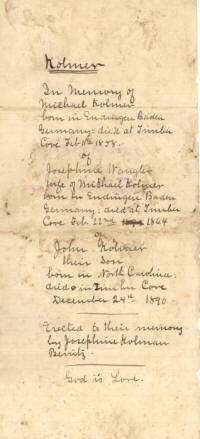 Kolmer
In Memory of
Michael Kolmer
born in Endingen Baden
Germany: died at Timber
Cove Feb 11th 1878.
of
Josephine Wangle
wife of Michael Kolmer
born in Endingen Baden
Germany; died at Timber
Cove Feb. 22nd 1864
of
John Kolmer
their Son
born in North Carolina;
died in Timber Cove
December 24th 1890
Erected to their memory
by Josephine Kolman
Benitz.
God is Love.